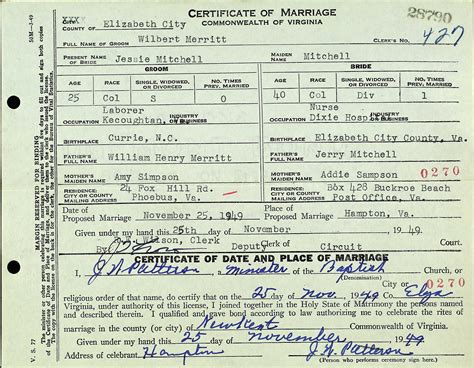 CERTIFICATE OF MARRIAGE
COMMONWEALTH OF VIRGINIA
28790
COUNTY OF Elizabeth City
FULL NAME OF GROOM Wilbert Merritt
CLERK'S NO. 427
PRESENT NAME OF BRIDE Jessie Mitchell
MAIDEN NAME Mitchell
GROOM BRIDE
AGE RACE SINGLE, WIDOWED, OR DIVORCED NO. TIMES PREV. MARRIED AGE RACE SINGLE, WIDOWED, OR DIVORCED NO. TIMES PREV. MARRIED
25 Col S 0 40 Col Div 1
OCCUPATION Laborer Kecoughtan, INDUSTRY OR BUSINESS
OCCUPATION Nurse Dixie Hospital INDUSTRY OR BUSINESS
BIRTHPLACE Currie, N.C. BIRTHPLACE Elizabeth City County, Va
FATHER'S FULL NAME William Henry Merritt FATHER'S FULL NAME Jerry Mitchell
MOTHER'S MAIDEN NAME Amy Simpson MOTHER'S MAIDEN NAME Addie Sampson 0270
RESIDENCE: CITY OR COUNTY MAILING ADDRESS 24 Fox Hill Rd. Phoebus, Va. RESIDENCE: CITY OR COUNTY MAILING ADDRESS Box 428 Buckroe Beach Post Office, Va.
Date of Proposed Marriage November 25, 1949 Place of Proposed Marriage Hampton, Va.
Given under my hand this 25th day of November 1949
By Clerk Deputy Clerk of Circuit Court.
CERTIFICATE OF DATE AND PLACE OF MARRIAGE
I, J. W. Patterson, a minister of the Baptist Church, or
(Denomination)
0270
religious order of that name, do certify that on the 25 day of Nov. 1949
Virginia, under authority of this license, I joined in the Holy State of Matrimony the persons
named and described therein. I qualified and gave bond according to law authorizing me to celebrate the rites
of marriage in the county (or city) of New Kent Commonwealth of Virginia.
Given under my hand this 25 day of November 1949
Address of celebrant Hampton J. W. Patterson
(Person who performs ceremony sign here)
50M—3-49
MARGIN RESERVED FOR BINDING
V. S. 77